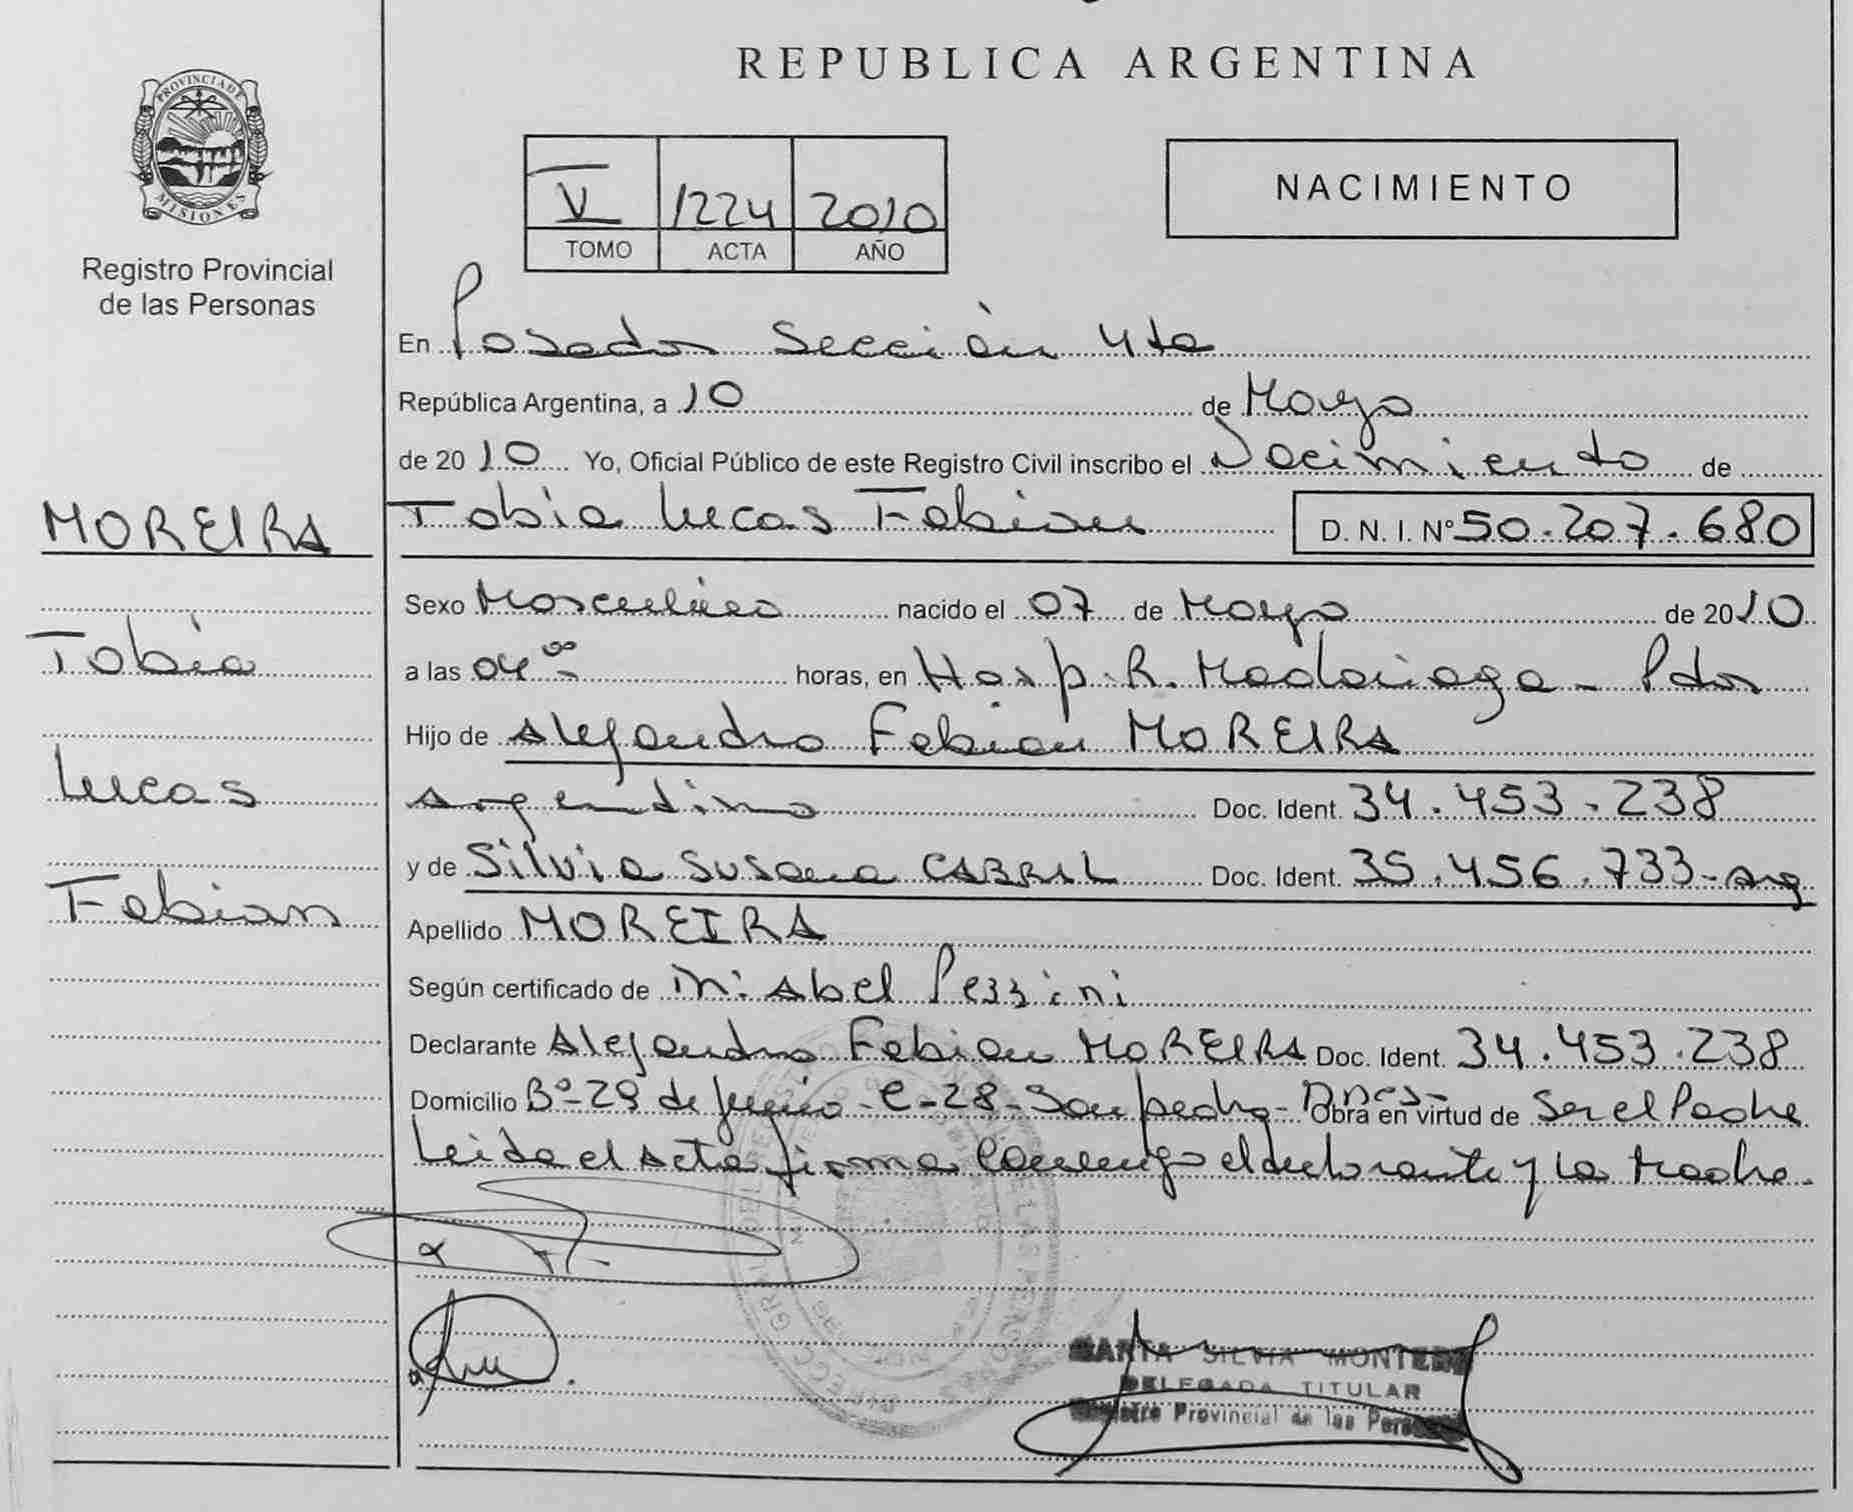 REPUBLICA ARGENTINA
PROVINCIA DE MISIONES
Registro Provincial
de las Personas
V 1224 2010
TOMO ACTA AÑO
NACIMIENTO
En Posadas Sección 4ta
República Argentina, a 10 de Mayo
de 2010 Yo, Oficial Público de este Registro Civil inscribo el Nacimiento de
MOREIRA
Tobia Lucas Fabian D. N. I. Nº 50.207.680
Sexo Masculino nacido el 07 de Mayo de 2010
Tobia
a las 04 00 horas, en Hosp. R. Madariaga - Pdas
Hijo de Alejandro Fabian MOREIRA
Lucas
argentino Doc. Ident. 34.453.238
y de Silvia Susana CABRAL Doc. Ident. 35.456.733-arg
Fabian
Apellido MOREIRA
Según certificado de Mirabel Pezzini
Declarante Alejandro Fabian MOREIRA Doc. Ident. 34.453.238
Domicilio Bº-29 de Junio - C-28- San pedro - Mnes- Obra en virtud de Ser el Padre
Leida el acta firma conmigo el declarante y la Madre.
SILVIA MONTERO
DELEGADA TITULAR
Provincial de las